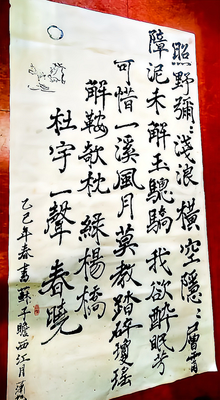 照野彌〻淺浪橫空隱〻層霄
障泥未解玉驄驕我欲醉眠芳
可惜一溪風月莫教踏碎瓊瑤
解鞍欹枕綠楊橋
杜宇一聲春曉
乙巳年春書蘇子瞻西江月